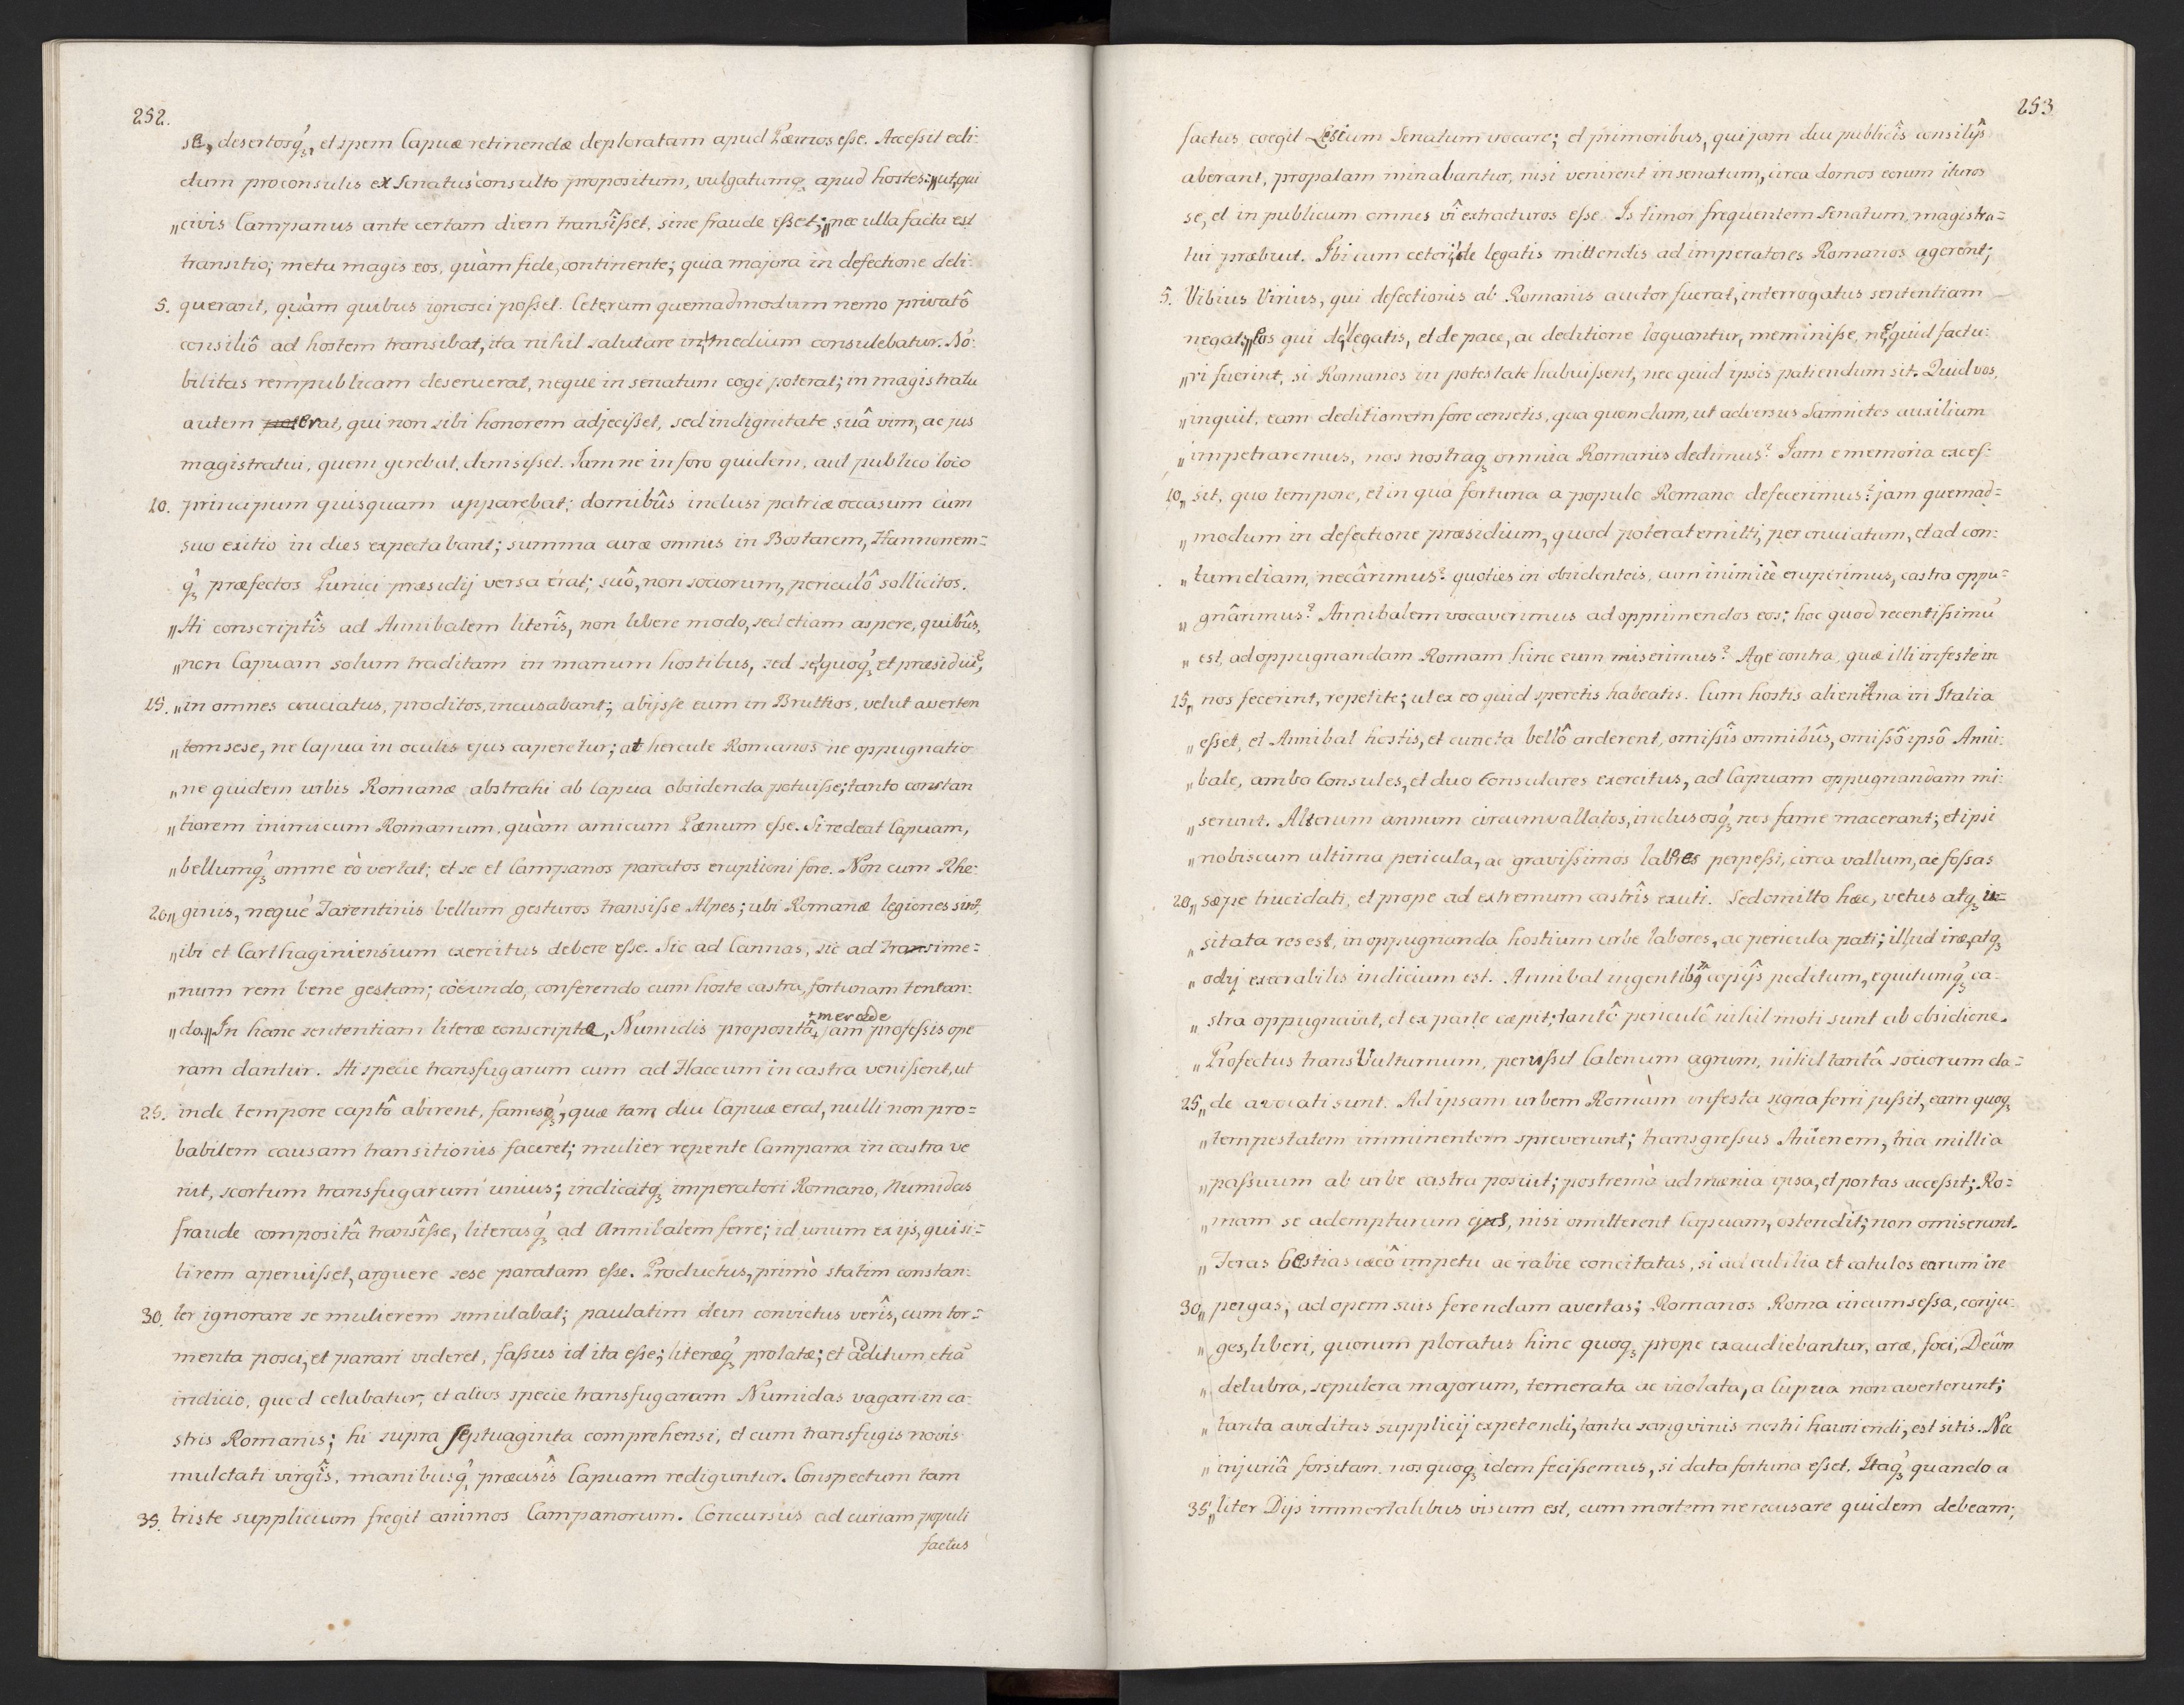 252.
se, desertosq́, et spem Capuæ retinendæ deploratam apud Pœnos esse. Accessit edi-
ctum proconsulis ex Senatusconsulto propositum, vulgatumq́ apud hostes: „ut, qui
„civis Campanus ante certam diem transîsset, sine fraude esset; „nec ulla facta est
transitio; metu magis eos, quàm fide, continente; quia majora in defectione deli-
5. querant, quàm quibus ignosci posset. Ceterum quemadmodum nemo privatô
consiliô ad hostem transibat, ita nihil salutare in medium consulebatur. No-
bilitas rempublicam deseruerat, neque in senatum cogi poterat; in magistratu
autem erat, qui non sibi honorem adjecisset, sed indignitate suâ vim, ac jus
magistratui, quem gerebat, demsisset. Jam ne in foro quidem, aut publico loco
10. principum quisquam apparebat; domibûs inclusi patriæ occasum cum
suo exitio in dies expectabant; summa curæ omnis in Bostarem, Hannonem-
q́ præfectos Punici præsidij versa erat; suô, non sociorum, periculô sollicitos.
„Hi conscriptîs ad Annibalem literîs, non libere modo, sed etiam aspere, quibûs,
„non Capuam solum traditam in manum hostibus, sed se quoq́, et præsidiũ,
15. „in omnes cruciatus, proditos, incusabant; abijsse eum in Bruttios, velut averten
„tem sese, ne Capua in oculis ejus caperetur; at hercule Romanos ne oppugnatio
„ne quidem urbis Romanæ abstrahi ab Capua obsidenda potuisse; tanto constan
„tiorem inimicum Romanum, quàm amicum Pœnum esse. Si redeat Capuam,
„bellumq́ omne eò vertat; et se et Campanos paratos eruptioni fore. Non cum Rhe-
20„ ginis, neque Tarentinis bellum gesturos transisse Alpes; ubi Romanæ legiones sint,
„ibi et Carthaginiensium exercitus debere esse. Sic ad Cannas, sic ad Trasime-
„num rem bene gestam; coëundo, conferendo cum hoste castra, fortunam tentan-
+ mercede
„do. „In hanc sententiam literæ conscriptæ, Numidis propositâ + jam professis ope
ram dantur. Hi specie transfugarum cum ad Flaccum in castra venissent, ut
25. inde tempore captô abirent, famesq́, quæ tam diu Capuæ erat, nulli non pro-
babilem causam transitionis faceret; mulier repente Campana in castra ve
nit, scortum transfugarum unius; indicatq́ imperatori Romano, Numidas
fraude compositâ transîsse, literasq́ ad Annibalem ferre; id unum ex ijs, qui si-
bi rem aperuisset, arguere sese paratam esse. Productus, primò statim constan-
30. ter ignorare se mulierem simulabat; paulatim dein convictus verîs, cum tor-
menta posci, et parari videret, fassus id ita esse; literæq́ prolatæ; et additum etiã
indicio, quod celabatur, et alios specie transfugarum Numidas vagari in ca-
stris Romanis; hi supra septuaginta comprehensi, et cum transfugis novis
mulctati virgîs, manibusq́ præcisîs Capuam rediguntur. Conspectum tam
35. triste supplicium fregit animos Campanorum. Concursus ad curiam populi
factus
253
factus coegit Lesium Senatum vocare; et primoribus, qui jam diu publicîs consilijs
aberant, propalam minabantur, nisi venirent in senatum, circa domos eorum ituros
se, et in publicum omnes vî extracturos esse. Is timor frequentem Senatum magistra-
tui præbuit. Ibi cum ceteri de legatis mittendis ad imperatores Romanos agerent;
5. Vibius Virius, qui defectionis ab Romanis auctor fuerat, interrogatus sententiam
negat: „Eos qui de legatis, et de pace, ac deditione loquantur, meminisse, nec quid factu-
„ri fuerint, si Romanos in potestate habuissent, nec quid ipsis patiendum sit. Quid vos,
„inquit, eam deditionem fore censetis, qua quondam, ut adversus Samnites auxilium
„impetraremus, nos nostraq́ omnia Romanis dedimus? Jam e memoria exces-
10„ sit, quo tempore, et in qua fortuna a populo Romano defecerimus? jam quemad-
„modum in defectione præsidium, quod poterat emitti, per cruciatum, et ad con-
„tumeliam, necârimus? quoties in obsidenteis, cum inimicè eruperimus, castra oppu-
„gnârimus? Annibalem vocaverimus ad opprimendos eos; hoc quod recentissimũ
„est, ad oppugnandam Romam hinc eum miserimus? Age contra, quæ illi infeste in
15„ nos fecerint, repetite; ut ex eo quid speretis habeatis. Cum hostis alienigena in Italia
„esset, et Annibal hostis, et cuncta bellô arderent, omissîs omnibûs, omissô ipsô Anni-
„bale, ambo Consules, et duo Consulares exercitus, ad Capuam oppugnandam mi-
„serunt. Alterum annum circumvallatos, inclusosq́ nos fame macerant; et ipsi
„nobiscum ultima pericula, ac gravissimos labores perpessi, circa vallum, ac fossas
20„ sæpe trucidati, et prope ad extremum castrîs exuti. Sed omitto hæc, vetus atq́ u-
„sitata res est, in oppugnanda hostium urbe labores, ac pericula pati; illud iræ, atq́
„odij execrabilis indicium est. Annibal ingentibq́ copijs peditum, equitumq́ ca-
„stra oppugnavit, et ex parte cæpit; tantô periculô nihil moti sunt ab obsidione.
„Profectus trans Vulturnum, perussit Calenum agrum, nihil tantâ sociorum cla-
25„ de avocati sunt. Ad ipsam urbem Romam infesta signa ferri jussit, eam quoq́
„tempestatem imminentem spreverunt; transgressus Aniẽnem, tria millia
„passuum ab urbe castra posuit; postremò ad mœnia ipsa, et portas accessit; Ro-
„mam se adempturum ejus, nisi omitterent Capuam, ostendit; non omiserunt.
„Feras bestias cæcô impetu ac rabie concitatas, si ad cubilia et catulos earum ire
30„ pergas, ad opem suis ferendam avertas; Romanos Roma circumsessa, conju-
„ges, liberi, quorum ploratus hinc quoq́ prope exaudiebantur, aræ, foci, Deûm
„delubra, sepulcra majorum, temerata ac violata, a Capua non averterunt;
„tanta aviditas supplicij expetendi, tanta sangvinis nostri hauriendi, est sitis. Nec
„injuriâ forsitan, nos quoq́ idem fecissemus, si data fortuna esset. Itaq́ quando a
35„ liter Dijs immortalibus visum est, cum mortem ne recusare quidem debeam;